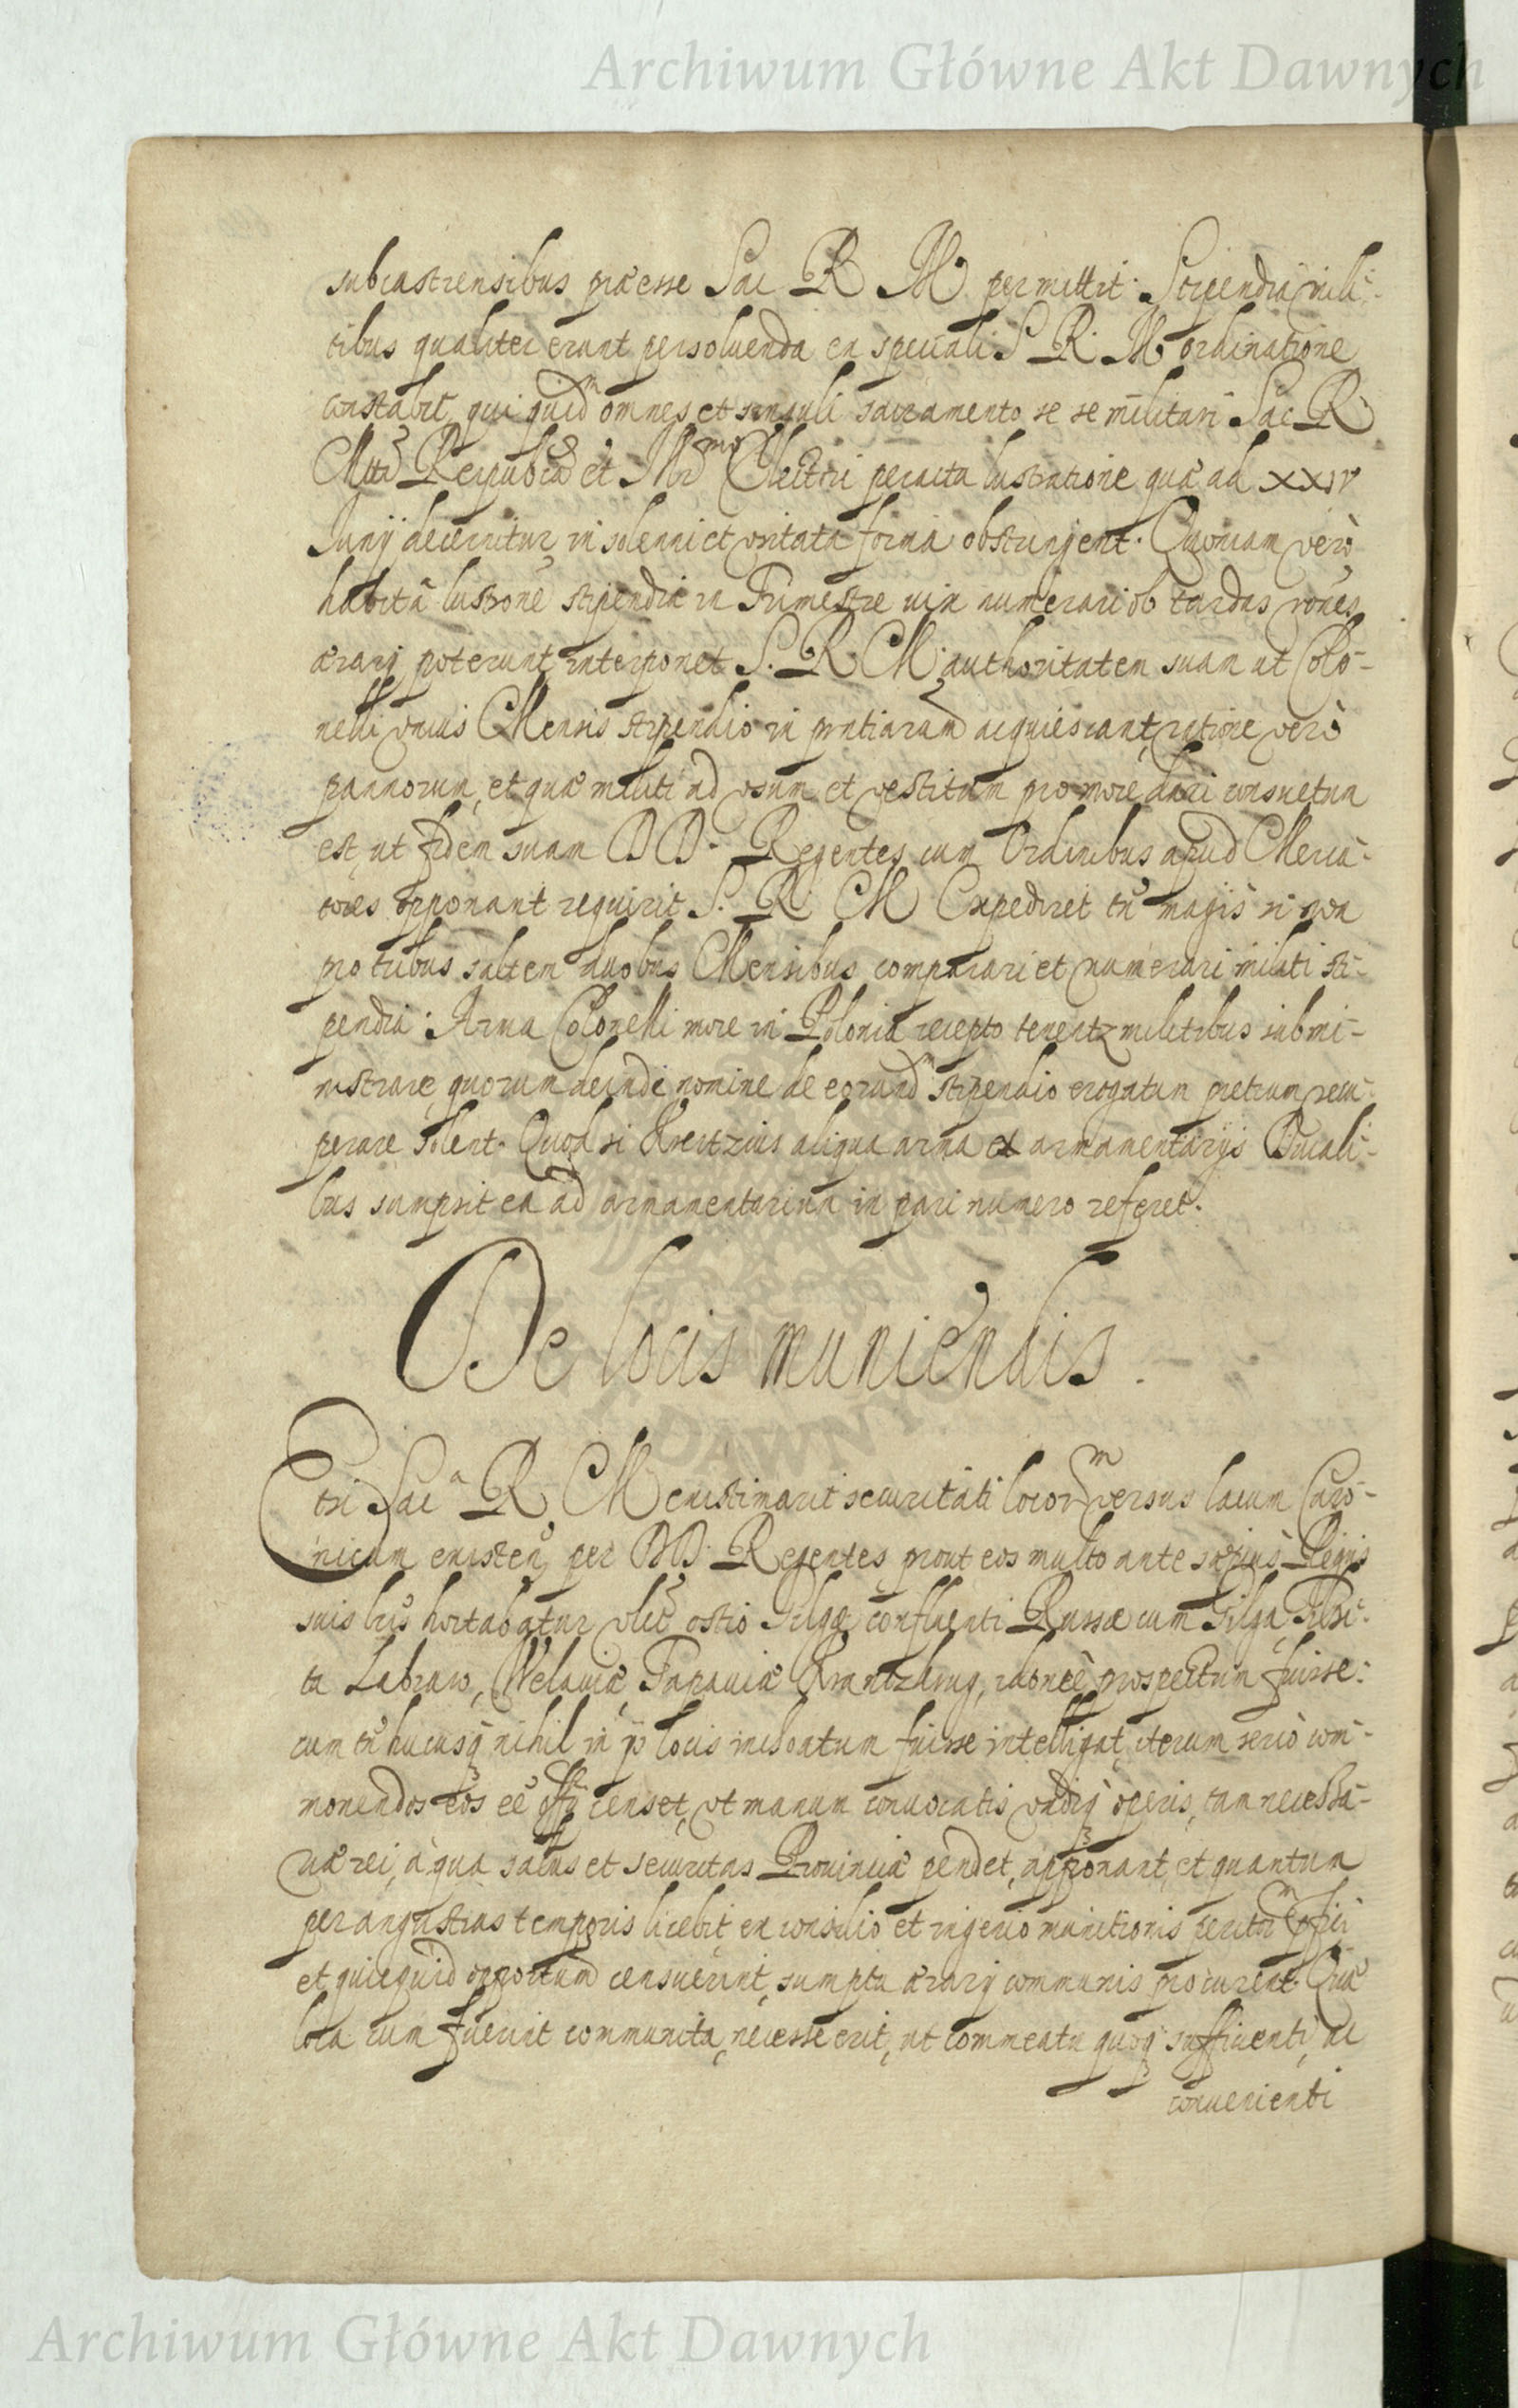 Archiwum Główne Akt Dawnych
subcastrensibus præesse Sac R M permittit. Stipendia mili-
tibus qualiter erunt persoluenda ex speciali S R M ordinatione
constabit, qui quidm omnes et singuli sacramento se se militari Sac R
Mtti Reipublcæ et Illmo Electri peracta lustratione quæ ad xxiv
Junij decernitur, in solenni et vsitata forma obstringent. Quoniam verò
habitâ lustrone stipendia in Trimestre vix numerari ob tardas rones
ærarij poterunt, interponet S. R M authoritatem suam ut Colo-
nelli vnius Mensis stipendio in pntiarum acquiescant, ratione verò
pannorum, et quæ militi ad vsum et vestitum pro more dari consuetum
est, ut fidem suam DD. Regentes cum Ordinibus apud Merca-
tores opponant requirit S. R M Expediret tn magis si non
pro tribus saltem duobus Mensibus comparari et numerari militi sti-
pendia. Arma Colonelli more in Polonia recepto tenentur militibus submi-
nistrare, quorum deinde nomine de eorundm stipendio erogatum pretium recu-
perare solent. Quod si Kreitzius aliqua arma ex armamentarijs Ducali-
bus sumpsit ea ad armamentarium in pari numero referet.
De locis muniendis.
Etsi Sac R M existimarit securitati locorm versus lacum Curo-
nicum existen per DD. Regentes prout eos multo ante sæpius Regijs
suis lris hortabatur, vltr ostio Gilgæ confluenti Russæ cum Gilga, Tilsi-
ta Labiaw, Welauiæ, Tapauiæ Krantzkrug, prospectum fuisse:
cum tn hucusq nihil in ijs locis inchoatum fuisse intelligat, iterum serio com-
monendos eos ee censet, vt manum conuocatis vndiq operis, tam necessa-
riæ rei, à qua salus et securitas Prouinciæ pendet, apponant, et quantum
per angustias temporis licebit, ex consilio et ingenio munitionis peritorm
et quicquid opportunum censuerint, sumptu ærarij communis procurent. Quæ
loca cum fuerint communita, necesse erit, ut commeatu quoq sufficienti, ac
conuenienti
Archiwum Główne Akt Dawnych